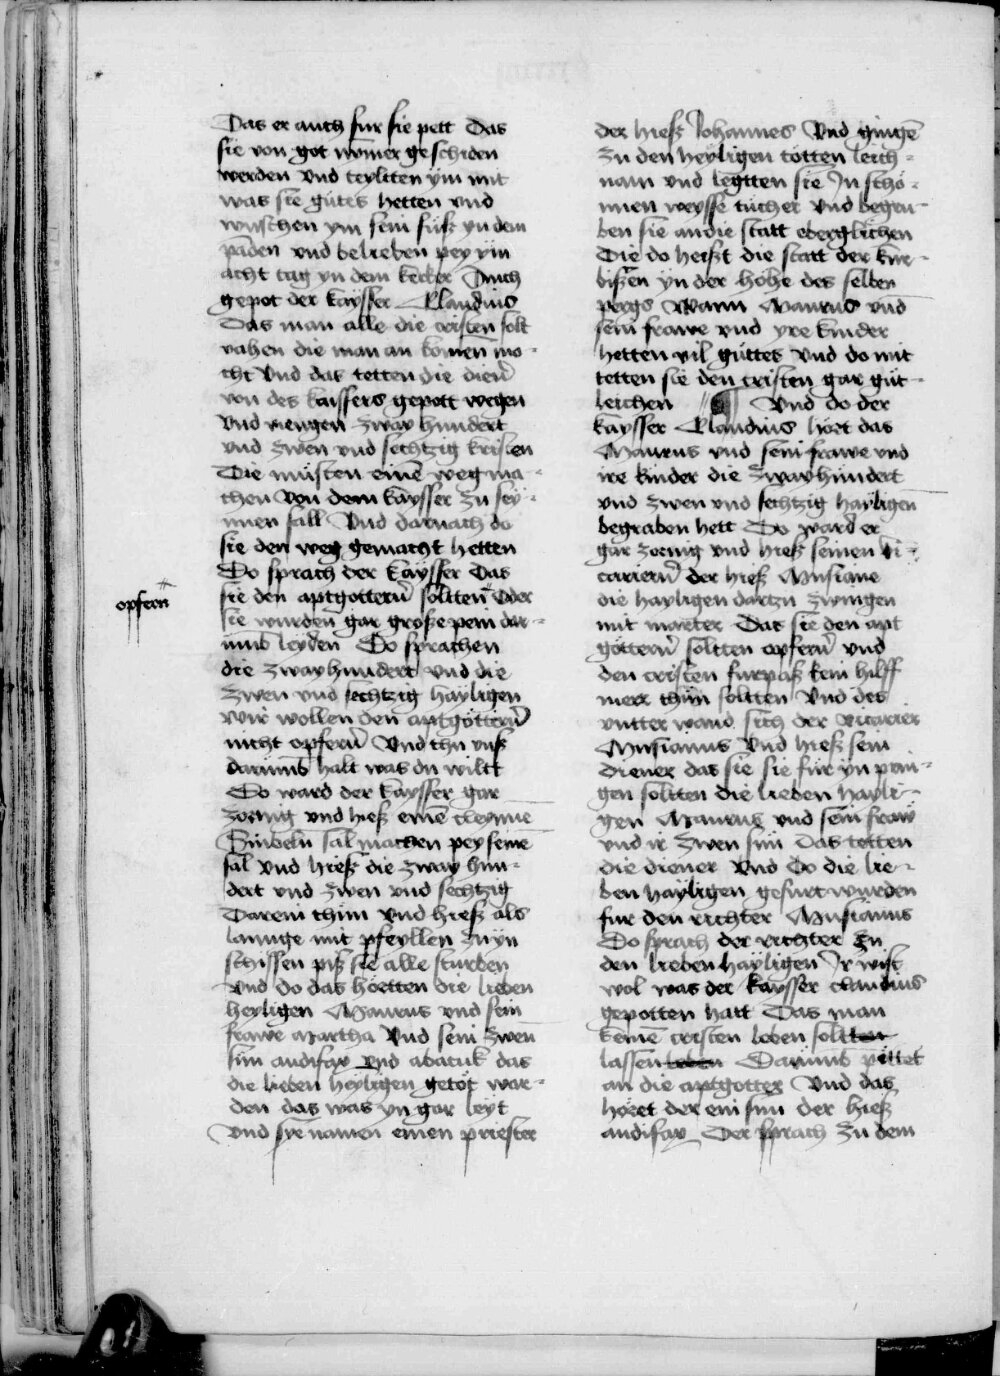 Das er auch fur sie pett Das
sie von got nÿmer geschiden
werden Vnd teyltten ÿm mit
was sie gutes hetten vnd
wuschen ym sein fusß yn dem
paden vnd belieben pey ym
acht tag yn dem kercker Auch
gepot der kaÿsser Klaudius
Das man alle die cristen solt
vahen die man an komen mo-
cht Vnd das tetten die dienr̄
von des kaissers gepott wegen
Vnd viengen zway hundert
vnd zwen vnd sechtzig kristen
Die mùsten einē weg ma-
chen Von dem kaÿsser zu seÿ-
nnen sall Vnd darnach do
sie den weg gemacht hetten
Do sprach der kaÿsser Das
sie den aptgotterñ soltten Oder
opferen
sie wurden gar große pein dar-
vmb leyden Do sprachen
die zwayhundert vnd die
zwen vnd sechtzig haÿligen
Wir wollen den aptgötterñ
nicht opferñ Vnd thu vnß
darùmb halt was du wiltt
Do ward der kaÿsser gar
zornig vnd hieß einē cleynnē
Sinbeln sal machen pey seinē
sal Vnd hieß die zway hun-
dert vnd zwen vnd sechtzig
Darein thun Vnd hieß als
lannge mit pfeyllen zu yn
schissen piß sie alle sturben
Vnd do das hòetten die lieben
heyligen Maurus vnd sein
frawe Martha Vnd sein zwen
sùn audifax vnd abacuk das
die lieben heyligen getöt war-
den das was yn gar leyt
Vnd sye namen einen priester
der hieß Johannes Vnd gingē
zu den heyligen totten leich-
nam vnd legtten sie Jn schö-
nnen weysse tucher Vnd begru-
ben sie an die statt eberglichen
Die do heißt die statt der kùr-
bißen yn der höhe des selben
pergs Wann Maurus vnd
sein frawe vnd yre kinder
hetten vil guttes Vnd do mit
tetten sie den cristen gar gùt-
leichen Vnd do der
kaysser Klaudius hört das
Maurus vnd sein frawe vnd
ire kinder die zwayhundert
vnd zwen vnd sechtzig hayligen
begraben hett Do ward er
gar zornig vnd hieß seinen vi-
carierñ der hieß Musiane
die hayligen dartzu zwingen
mit marter Das sie den apt
götterñ soltten opferñ vnd
den cristen furpaß kein hilff
merr thùn soltten Vnd des
vntter wand sich der vicarier
Musianus Vnd hieß sein
diener das sie sie fùr yn prin-
gen soltten die lieben hayli-
gen Maurus vnd sein fraw
vnd ir zwen sùn Das tetten
die diener Vnd Do die lie-
ben haÿligen gefurt wurden
fur den richter Musianus
Do sprach der richter zu
den lieben haÿligen Jr wist
wol was der kaysser claudius
gepotten hatt Das man
keinē cristen leben soltten
lassen leben Darùmb pittet
an die aptgotter Vnd das
höret der ein sun der hieß
audifax Der sprach zu dem